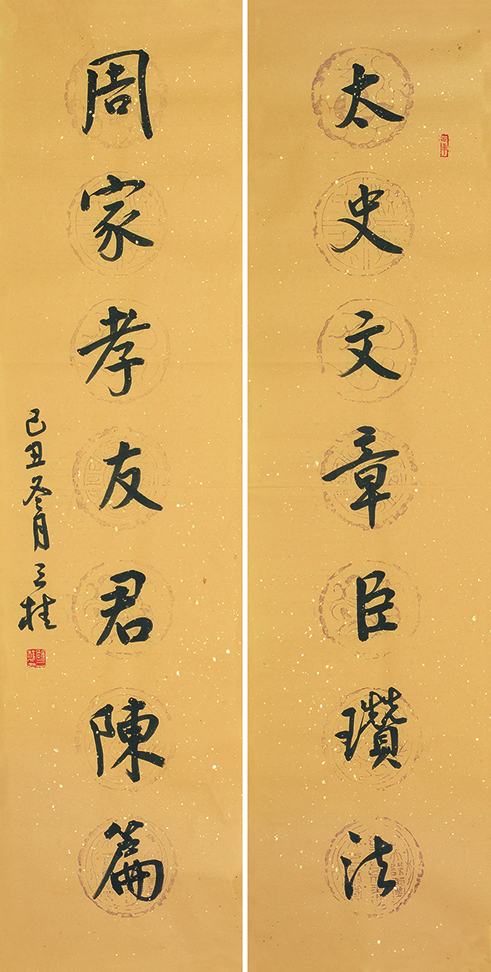 太史文章臣瓚法
周家孝友君陳篇
己丑冬月三桂